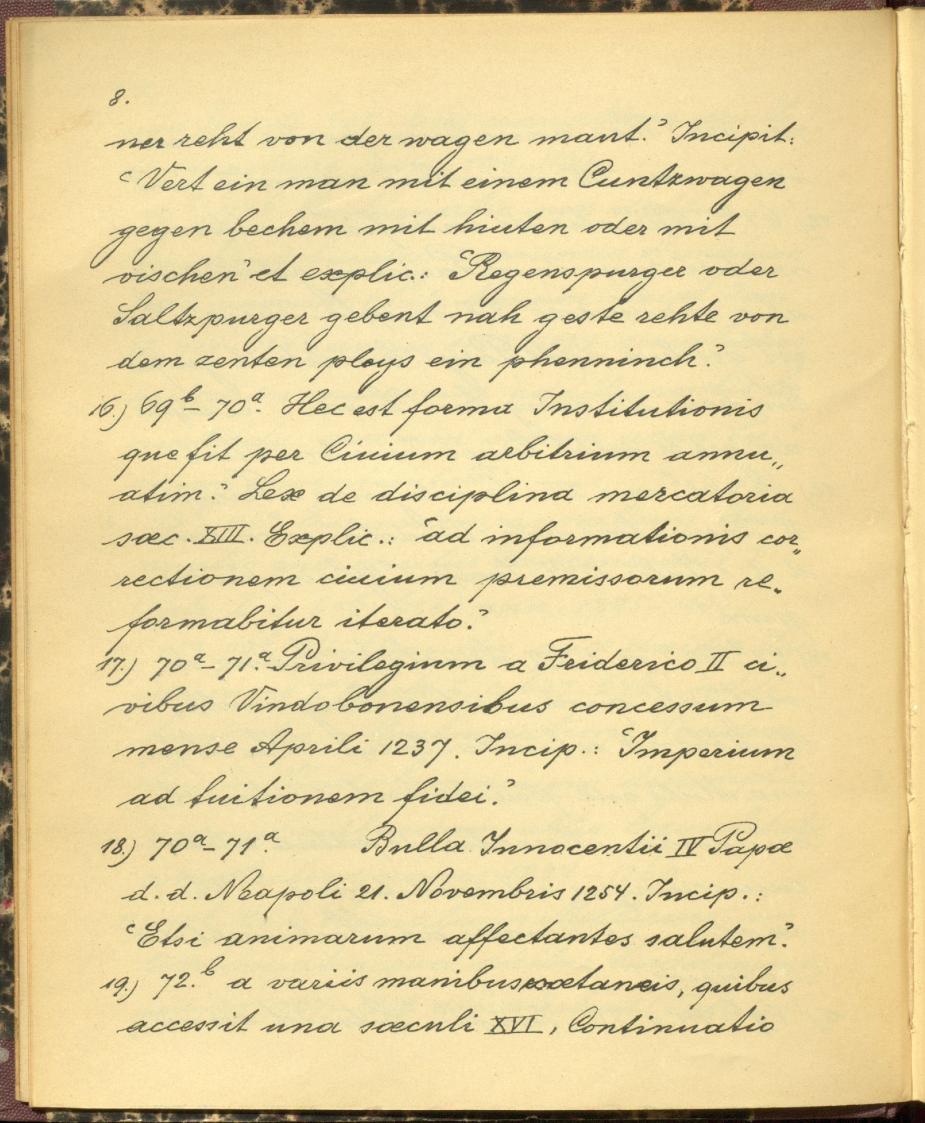 8.
ner reht von der wagen maut.” Incipit:
“Vert ein man mit einem Cuntzwagen
gegen bechem mit hiuten oder mit
vischen” et explic.: “Regenspurger oder
Saltzpurger gebent nah geste rehte von
dem zenten ploys ein phenninch.”
16.) 69b – 70a. Hec est forma Institutionis
que fit per Ciuium arbitrium annu„
atim.” Lex de disciplina mercatoria
sæc. XIII. Explic.: “ad informationis cor„
rectionem ciuium premissorum re„
formabitur iterato.”
17.) 70a – 71a. Privilegium a Friderico II ci„
vibus Vindobonensibus concessum
mense Aprili 1237. Incip.: “Imperium
ad tuitionem fidei.”
18.) 70a – 71a. Bulla Innocentii IV Papæ
d. d. Neapoli 21. Novembris 1254. Incip.:
“Etsi animarum affectantes salutem.”
19.) 72.b a variis manibus coætaneis, quibus
accessit una sæculi XVI, Continuatio